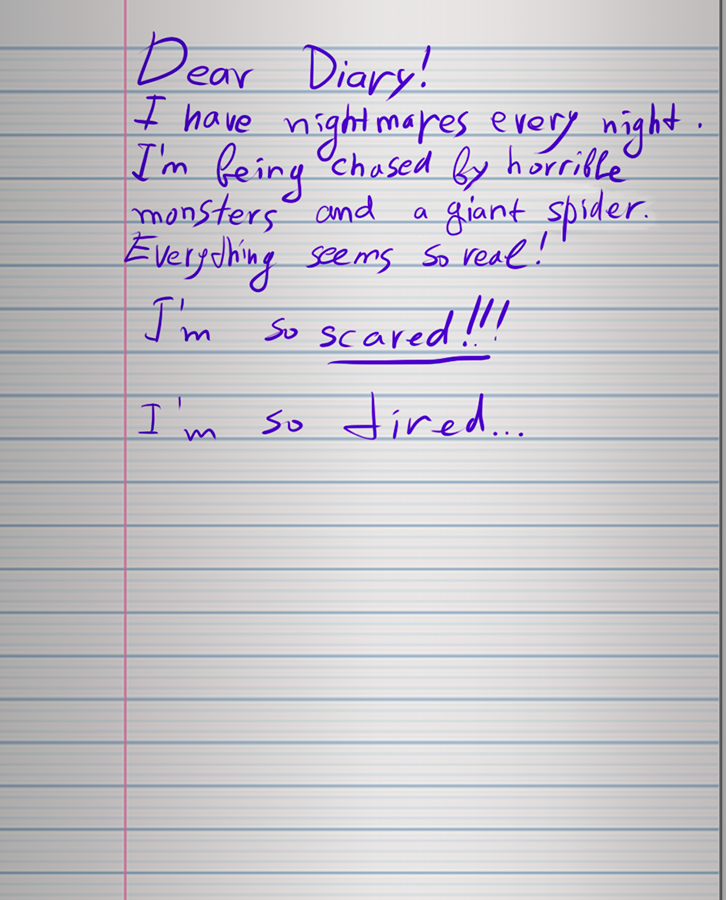 Dear Diary!
I have nightmares every night.
I'm being chased by horrible
monsters and a giant spider.
Everything seems so real!
I'm so scared!!!
I'm so tired...